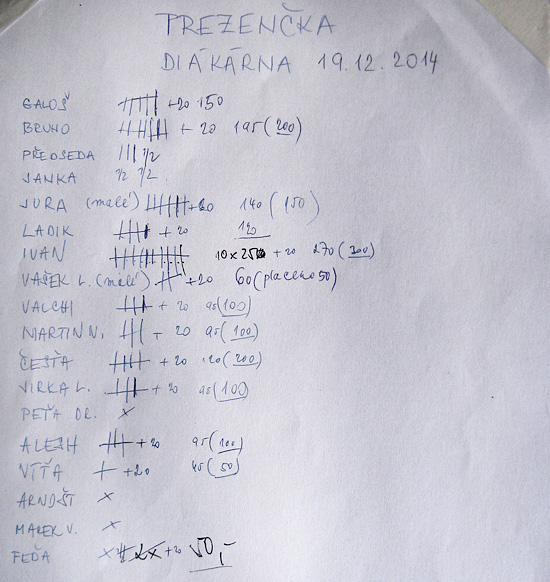 PREZENČKA
DIÁKÁRNA 19.12.2014
GALOŠ +20 150
BRUNO + 20 195 (200)
PŘEDSEDA 1/2
JANKA 1/2 1/2
JURA (malé) +20 140 (150)
LADIK + 20 120
IVAN 10 x 25 + 20 270 (300)
VAŠEK L. (malé) +20 60 (placeno 50)
VALCHI + 20 95 (100)
MARTIN V. + 20 95 (100)
ČESŤA + 20 120 (200)
JIRKA L. + 20 95 (100)
PEŤA DR. x
ALESH + 20 95 (100)
VÍŤA +20 45 (50)
ARNOŠT x
MAREK V. x
FEĎA x +20 50,-